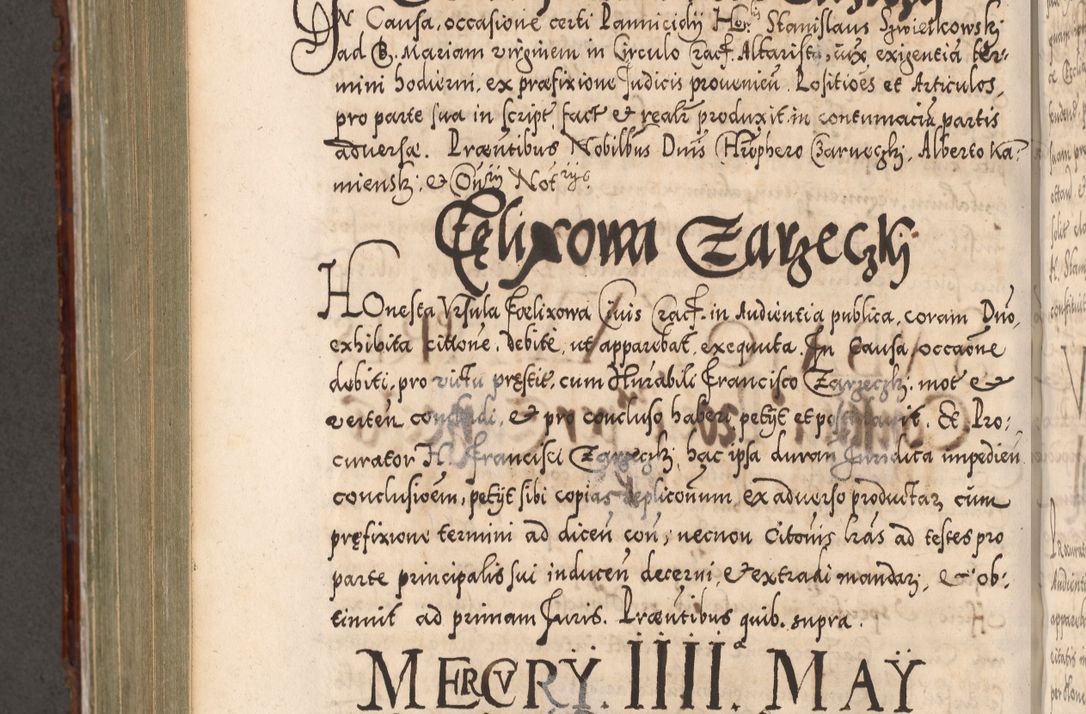 IN Causa, occasione certi Pannicidij Hon: Stanislaus Swietkowski
ad B. Mariam virginem in Circulo Crac. Altarista, vix exigentia ter-
mini hodierni, ex præfixione Judicis proueniēn. Positiões et Articulos,
pro parte sua in script. fact. et realr produxit, in contumaciā partis
aduersæ. Præntibus Nobilbus Dnis Chrophero Czarnęcki, Alberto Ka=
mienski, et Cons Notrijs.
Fęlixowa Zarzeczki
HOnesta Vrsula Fœlixowa Ciuis Crac. in Audientia publica, coram Dno,
exhibita citione, debite, ut apparebat, exequuta. In Causa, occaõne
debiti, pro victu pręstit, cum Hnrabili Francisco Zarzeczki, mot et
verten concludi, et pro concluso haberi petijt et postulauit. Et Pro:
curator H. Francisci Zarzęcki, hac ipsa duran Juridica impedien
conclusiõem, petijt sibi copias repliconum ex aduerso productar, cum
pręfixione termini ad dicen con, necnon Citonis lras ad testes pro
parte principalis sui inducen decerni, et extradi mandari, et ob:
tinuit ad primam Juris. Præntibus quib. supra.
MERCVRY. IIII.a MAŸ